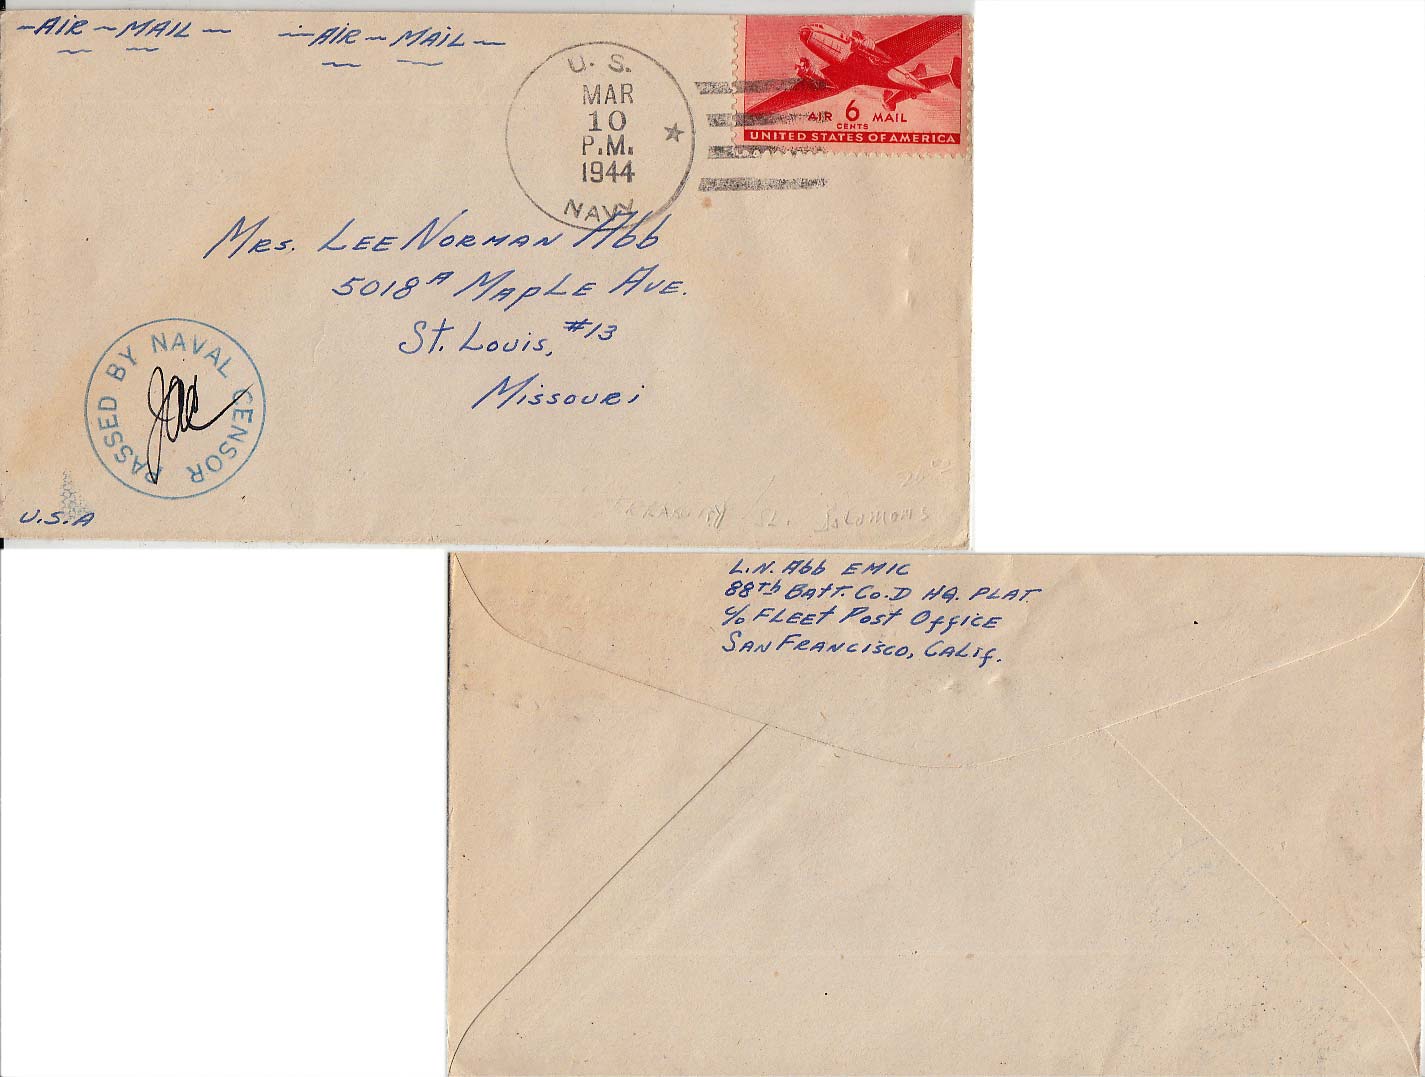 -AIR-MAIL- -AIR-MAIL-
U. S.
MAR
10
P.M.
1944
NAVY
AIR 6 MAIL
CENTS
UNITED STATES OF AMERICA
Mrs. LEE NORMAN Abb
5018A MAPLE AVE.
St. Louis, #13
Missouri
PASSED BY NAVAL CENSOR
U.S.A
SOLOMONS
L.N. Abb EM1C
88Th BATT. Co. D HQ. PLAT.
c/o FLEET POST OFFICE
SAN FRANCISCO, CALIF.